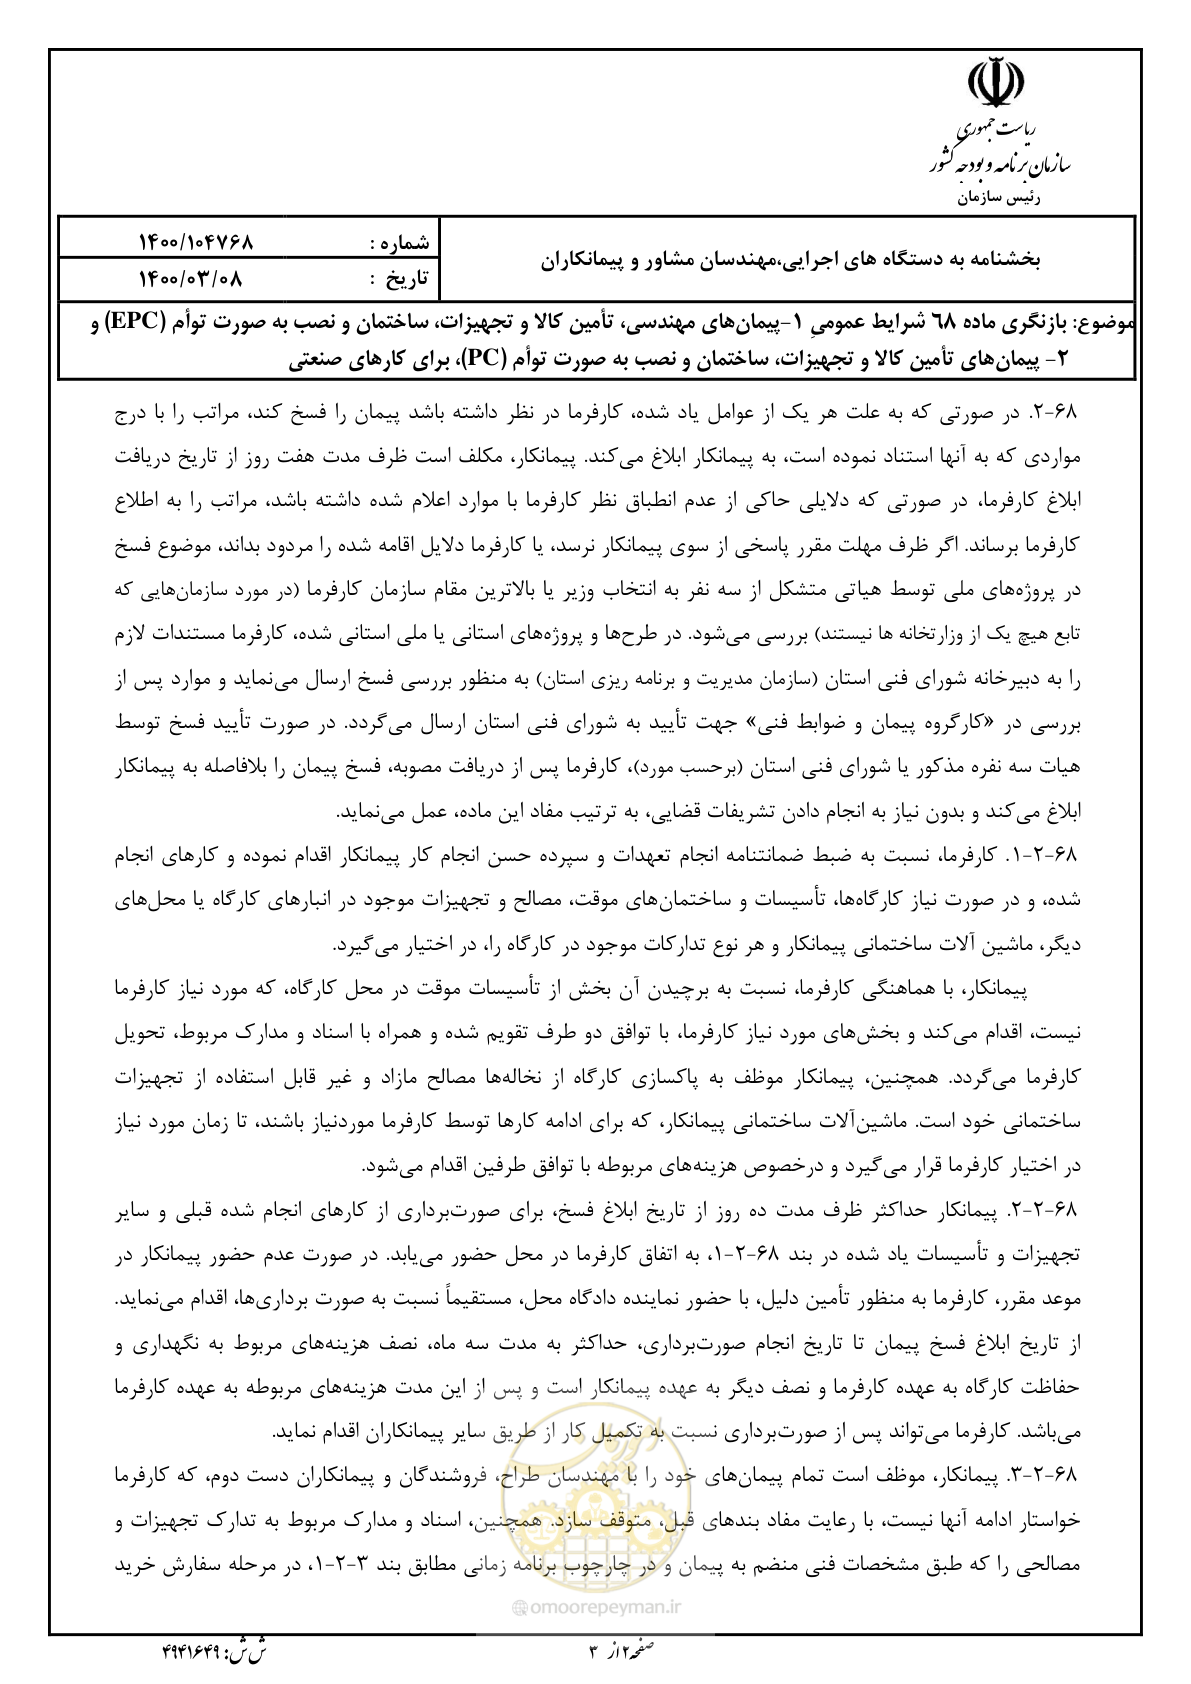 ریاست جمهوری
سازمان برنامه و بودجه کشور
رئیس سازمان
بخشنامه به دستگاه های اجرایی،مهندسان مشاور و پیمانکاران
شماره : ۱۴۰۰/۱۰۴۷۶۸
تاریخ : ۱۴۰۰/۰۳/۰۸
موضوع: بازنگری ماده ۶۸ شرایط عمومیِ ۱-پیمان‌های مهندسی، تأمین کالا و تجهیزات، ساختمان و نصب به صورت توأم (EPC) و
۲- پیمان‌های تأمین کالا و تجهیزات، ساختمان و نصب به صورت توأم (PC)، برای کارهای صنعتی
۲-۶۸. در صورتی که به علت هر یک از عوامل یاد شده، کارفرما در نظر داشته باشد پیمان را فسخ کند، مراتب را با درج
مواردی که به آنها استناد نموده است، به پیمانکار ابلاغ می‌کند. پیمانکار، مکلف است ظرف مدت هفت روز از تاریخ دریافت
ابلاغ کارفرما، در صورتی که دلایلی حاکی از عدم انطباق نظر کارفرما با موارد اعلام شده داشته باشد، مراتب را به اطلاع
کارفرما برساند. اگر ظرف مهلت مقرر پاسخی از سوی پیمانکار نرسد، یا کارفرما دلایل اقامه شده را مردود بداند، موضوع فسخ
در پروژه‌های ملی توسط هیاتی متشکل از سه نفر به انتخاب وزیر یا بالاترین مقام سازمان کارفرما (در مورد سازمان‌هایی که
تابع هیچ یک از وزارتخانه ها نیستند) بررسی می‌شود. در طرح‌ها و پروژه‌های استانی یا ملی استانی شده، کارفرما مستندات لازم
را به دبیرخانه شورای فنی استان (سازمان مدیریت و برنامه ریزی استان) به منظور بررسی فسخ ارسال می‌نماید و موارد پس از
بررسی در «کارگروه پیمان و ضوابط فنی» جهت تأیید به شورای فنی استان ارسال می‌گردد. در صورت تأیید فسخ توسط
هیات سه نفره مذکور یا شورای فنی استان (برحسب مورد)، کارفرما پس از دریافت مصوبه، فسخ پیمان را بلافاصله به پیمانکار
ابلاغ می‌کند و بدون نیاز به انجام دادن تشریفات قضایی، به ترتیب مفاد این ماده، عمل می‌نماید.
۱-۲-۶۸. کارفرما، نسبت به ضبط ضمانتنامه انجام تعهدات و سپرده حسن انجام کار پیمانکار اقدام نموده و کارهای انجام
شده، و در صورت نیاز کارگاه‌ها، تأسیسات و ساختمان‌های موقت، مصالح و تجهیزات موجود در انبارهای کارگاه یا محل‌های
دیگر، ماشین آلات ساختمانی پیمانکار و هر نوع تدارکات موجود در کارگاه را، در اختیار می‌گیرد.
پیمانکار، با هماهنگی کارفرما، نسبت به برچیدن آن بخش از تأسیسات موقت در محل کارگاه، که مورد نیاز کارفرما
نیست، اقدام می‌کند و بخش‌های مورد نیاز کارفرما، با توافق دو طرف تقویم شده و همراه با اسناد و مدارک مربوط، تحویل
کارفرما می‌گردد. همچنین، پیمانکار موظف به پاکسازی کارگاه از نخاله‌ها مصالح مازاد و غیر قابل استفاده از تجهیزات
ساختمانی خود است. ماشین‌آلات ساختمانی پیمانکار، که برای ادامه کارها توسط کارفرما موردنیاز باشند، تا زمان مورد نیاز
در اختیار کارفرما قرار می‌گیرد و درخصوص هزینه‌های مربوطه با توافق طرفین اقدام می‌شود.
۲-۲-۶۸. پیمانکار حداکثر ظرف مدت ده روز از تاریخ ابلاغ فسخ، برای صورت‌برداری از کارهای انجام شده قبلی و سایر
تجهیزات و تأسیسات یاد شده در بند ۶۸-۲-۱، به اتفاق کارفرما در محل حضور می‌یابد. در صورت عدم حضور پیمانکار در
موعد مقرر، کارفرما به منظور تأمین دلیل، با حضور نماینده دادگاه محل، مستقیماً نسبت به صورت برداری‌ها، اقدام می‌نماید.
از تاریخ ابلاغ فسخ پیمان تا تاریخ انجام صورت‌برداری، حداکثر به مدت سه ماه، نصف هزینه‌های مربوط به نگهداری و
حفاظت کارگاه به عهده کارفرما و نصف دیگر به عهده پیمانکار است و پس از این مدت هزینه‌های مربوطه به عهده کارفرما
می‌باشد. کارفرما می‌تواند پس از صورت‌برداری نسبت به تکمیل کار از طریق سایر پیمانکاران اقدام نماید.
۳-۲-۶۸. پیمانکار، موظف است تمام پیمان‌های خود را با مهندسان طراح، فروشندگان و پیمانکاران دست دوم، که کارفرما
خواستار ادامه آنها نیست، با رعایت مفاد بندهای قبل، متوقف سازد. همچنین، اسناد و مدارک مربوط به تدارک تجهیزات و
مصالحی را که طبق مشخصات فنی منضم به پیمان و در چارچوب برنامه زمانی مطابق بند ۳-۲-۱، در مرحله سفارش خرید
امور پیمان
@omoorepeyman.ir
صفحه ۲ از ۳
ش ش: ۴۹۴۱۶۴۹